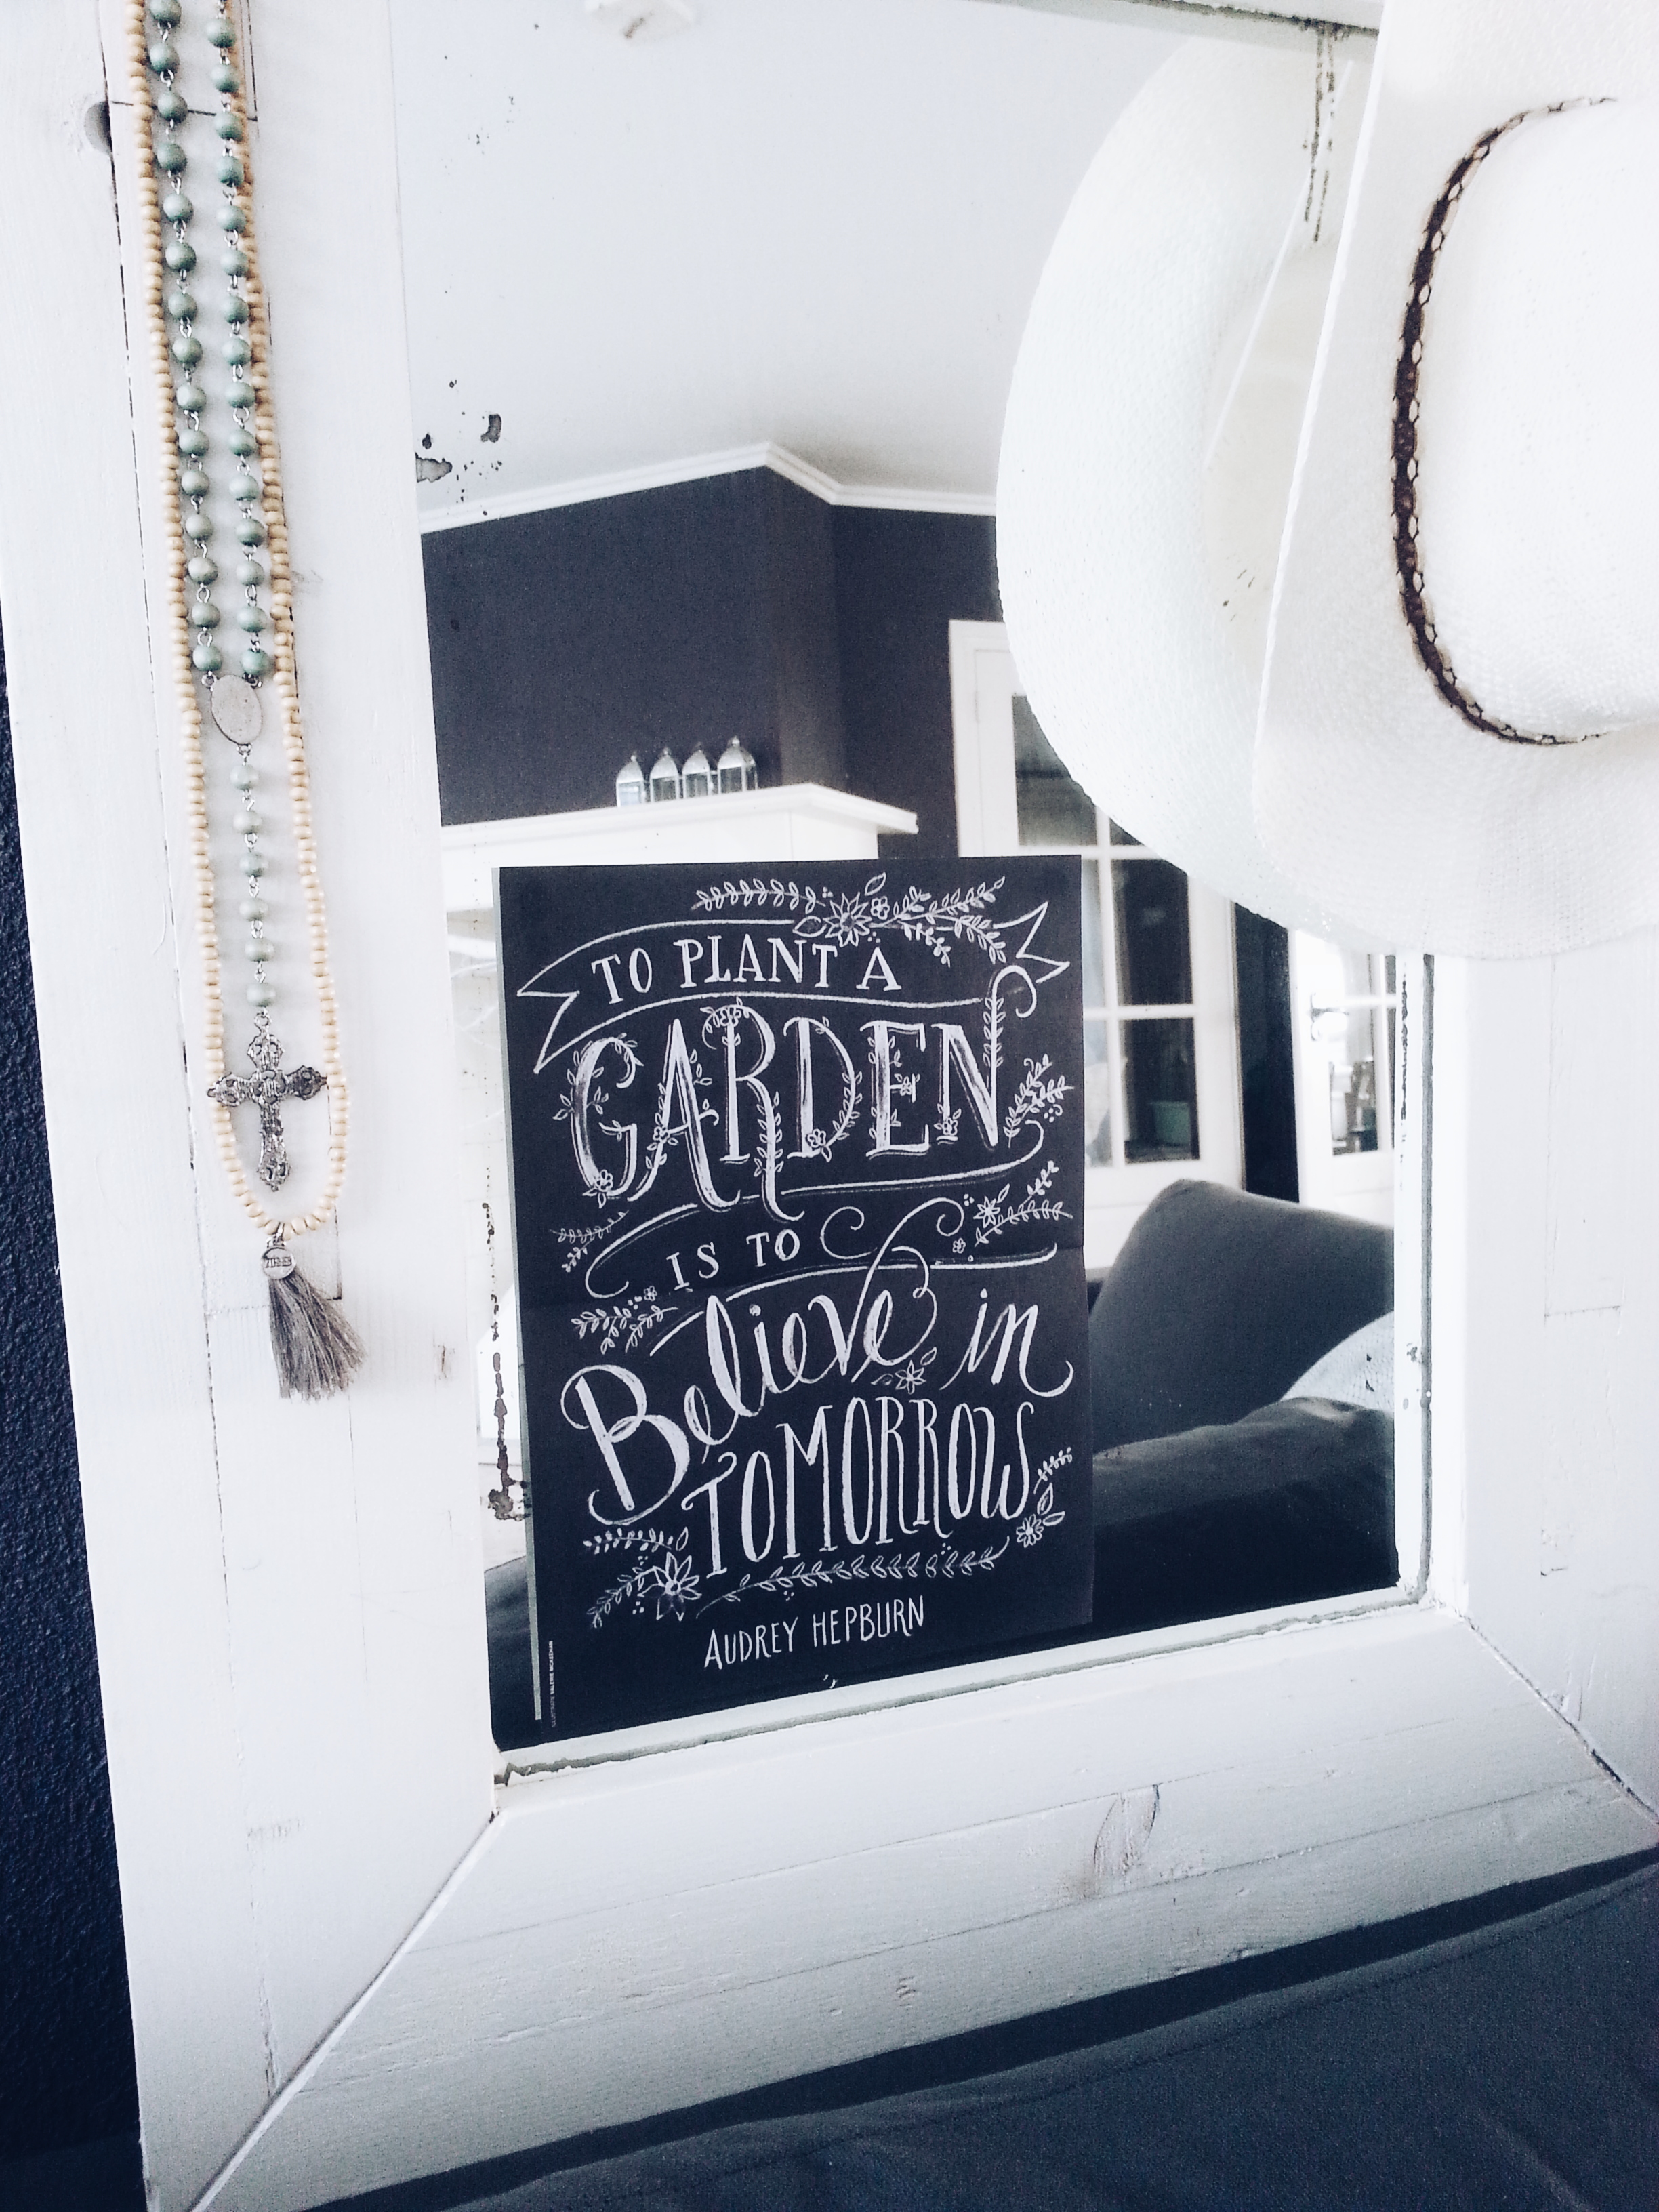 TO PLANT A
GARDEN
IS TO
Believe in
TOMORROW
AUDREY HEPBURN
VALERIE MCKEEHAN